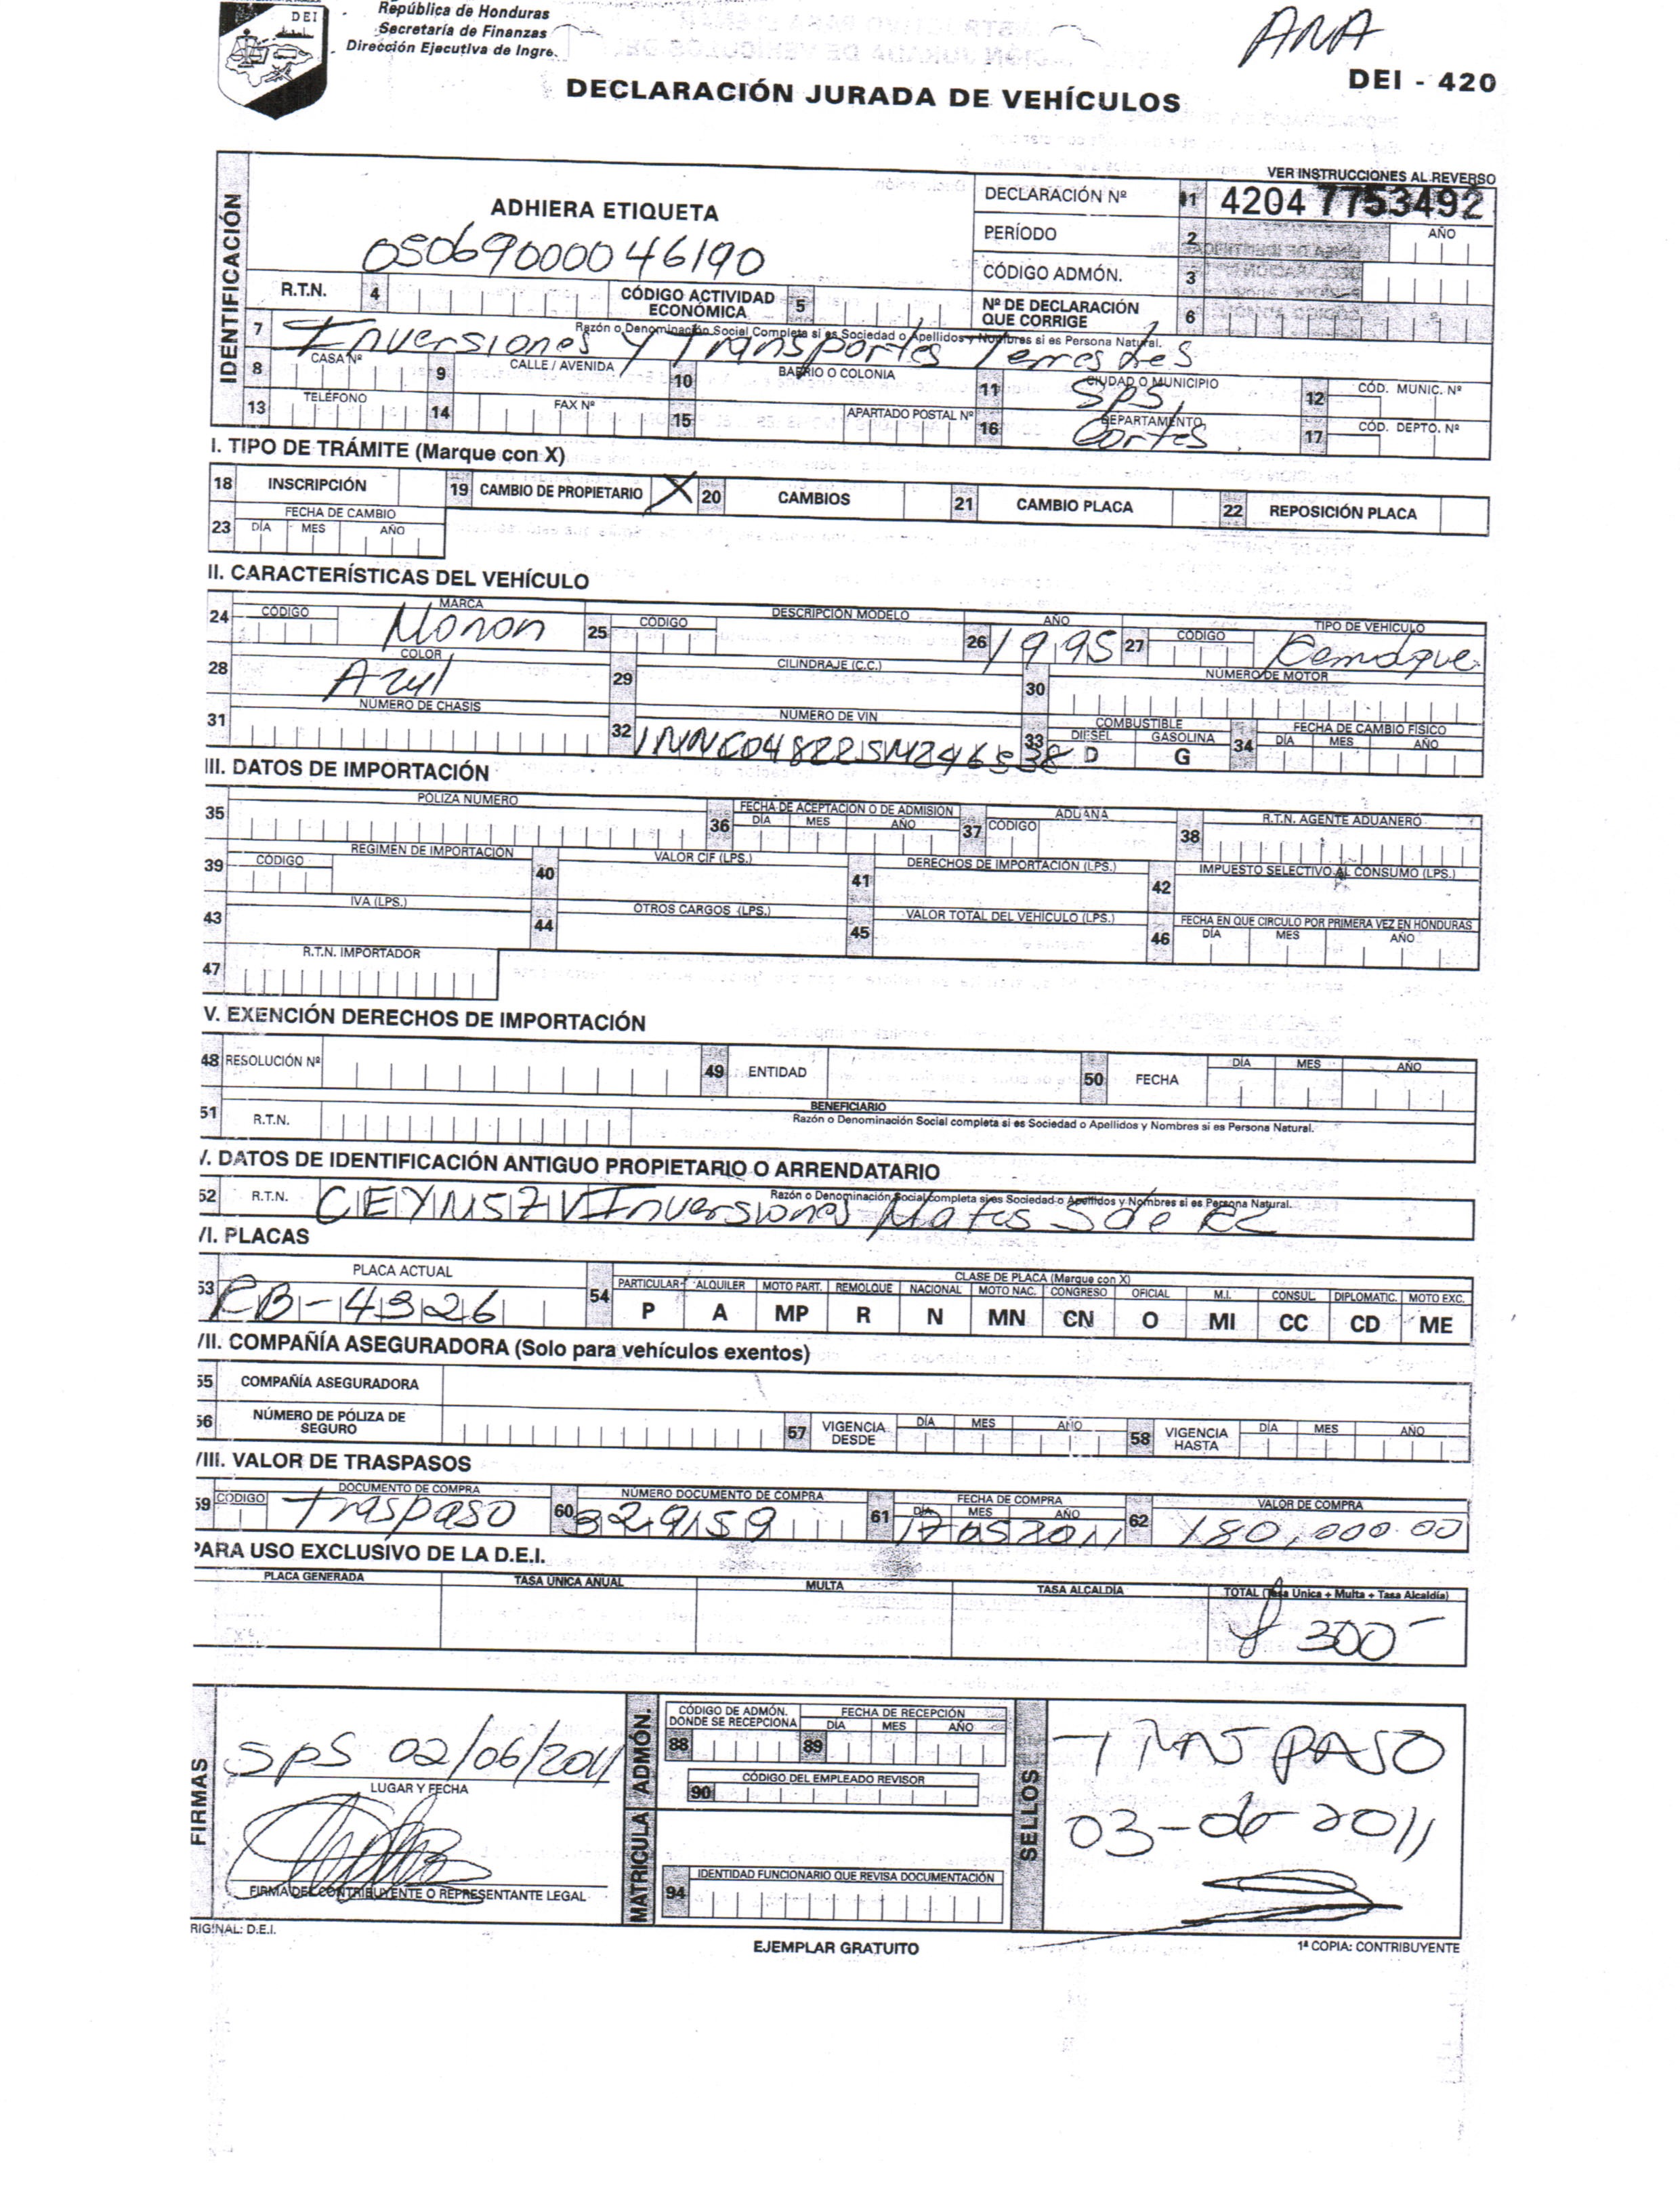 DEI
República de Honduras
Secretaría de Finanzas
Dirección Ejecutiva de Ingre.
ANA
DEI - 420
DECLARACIÓN JURADA DE VEHÍCULOS
VER INSTRUCCIONES AL REVERSO
IDENTIFICACIÓN
ADHIERA ETIQUETA
05069000046190
DECLARACIÓN Nº 1 4204 7753492
PERÍODO 2 AÑO
CÓDIGO ADMÓN. 3
R.T.N. 4 CÓDIGO ACTIVIDAD ECONÓMICA 5 Nº DE DECLARACIÓN QUE CORRIGE 6
7 Razón o Denominación Social Completa si es Sociedad o Apellidos y Nombres si es Persona Natural.
Inversiones y Transportes Terrestres
8 CASA Nº 9 CALLE / AVENIDA 10 BARRIO O COLONIA 11 CIUDAD O MUNICIPIO SPS, 12 CÓD. MUNIC. Nº
13 TELÉFONO 14 FAX Nº 15 APARTADO POSTAL Nº 16 DEPARTAMENTO Cortes. 17 CÓD. DEPTO. Nº
I. TIPO DE TRÁMITE (Marque con X)
18 INSCRIPCIÓN 19 CAMBIO DE PROPIETARIO X 20 CAMBIOS 21 CAMBIO PLACA 22 REPOSICIÓN PLACA
23 FECHA DE CAMBIO DÍA MES AÑO
II. CARACTERÍSTICAS DEL VEHÍCULO
24 CÓDIGO MARCA Monon 25 CÓDIGO DESCRIPCIÓN MODELO 26 AÑO 1995 27 CÓDIGO TIPO DE VEHÍCULO
28 COLOR Azul 29 CILINDRAJE (C.C.) 30 NÚMERO DE MOTOR
31 NÚMERO DE CHASIS 32 NÚMERO DE VIN 33 COMBUSTIBLE DIESEL D GASOLINA G 34 FECHA DE CAMBIO FÍSICO DÍA MES AÑO
III. DATOS DE IMPORTACIÓN
35 PÓLIZA NÚMERO 36 FECHA DE ACEPTACIÓN O DE ADMISIÓN DÍA MES AÑO 37 ADUANA CÓDIGO 38 R.T.N. AGENTE ADUANERO
39 CÓDIGO RÉGIMEN DE IMPORTACIÓN 40 VALOR CIF (LPS.) 41 DERECHOS DE IMPORTACIÓN (LPS.) 42 IMPUESTO SELECTIVO AL CONSUMO (LPS.)
43 IVA (LPS.) 44 OTROS CARGOS (LPS.) 45 VALOR TOTAL DEL VEHÍCULO (LPS.) 46 FECHA EN QUE CIRCULO POR PRIMERA VEZ EN HONDURAS DÍA MES AÑO
47 R.T.N. IMPORTADOR
V. EXENCIÓN DERECHOS DE IMPORTACIÓN
48 RESOLUCIÓN Nº 49 ENTIDAD 50 FECHA DÍA MES AÑO
51 R.T.N. BENEFICIARIO
Razón o Denominación Social completa si es Sociedad o Apellidos y Nombres si es Persona Natural.
V. DATOS DE IDENTIFICACIÓN ANTIGUO PROPIETARIO O ARRENDATARIO
52 R.T.N. Razón o Denominación Social completa si es Sociedad o Apellidos y Nombres si es Persona Natural.
Inversiones
VI. PLACAS
53 PLACA ACTUAL RB-4326 54 CLASE DE PLACA (Marque con X)
PARTICULAR ALQUILER MOTO PART. REMOLQUE NACIONAL MOTO NAC. CONGRESO OFICIAL M.I. CONSUL. DIPLOMATIC. MOTO EXC.
P A MP R N MN CN O MI CC CD ME
VII. COMPAÑÍA ASEGURADORA (Solo para vehículos exentos)
55 COMPAÑÍA ASEGURADORA
56 NÚMERO DE PÓLIZA DE SEGURO 57 VIGENCIA DESDE DÍA MES AÑO 58 VIGENCIA HASTA DÍA MES AÑO
VIII. VALOR DE TRASPASOS
59 CÓDIGO DOCUMENTO DE COMPRA Traspaso 60 NÚMERO DOCUMENTO DE COMPRA 329159 61 FECHA DE COMPRA DÍA MES AÑO 17 05 2011 62 VALOR DE COMPRA 180,000.00
PARA USO EXCLUSIVO DE LA D.E.I.
PLACA GENERADA TASA ÚNICA ANUAL MULTA TASA ALCALDÍA TOTAL (Tasa Única + Multa + Tasa Alcaldía)
300
FIRMAS
SPS 02/06/2011
LUGAR Y FECHA
FIRMA DEL CONTRIBUYENTE O REPRESENTANTE LEGAL
MATRICULA ADMÓN.
CÓDIGO DE ADMÓN. DONDE SE RECEPCIONA 88 FECHA DE RECEPCIÓN DÍA MES AÑO 89
CÓDIGO DEL EMPLEADO REVISOR 90
IDENTIDAD FUNCIONARIO QUE REVISA DOCUMENTACIÓN 94
SELLOS
TRASPASO
03-06-2011
RIGINAL: D.E.I.
EJEMPLAR GRATUITO
1ª COPIA: CONTRIBUYENTE